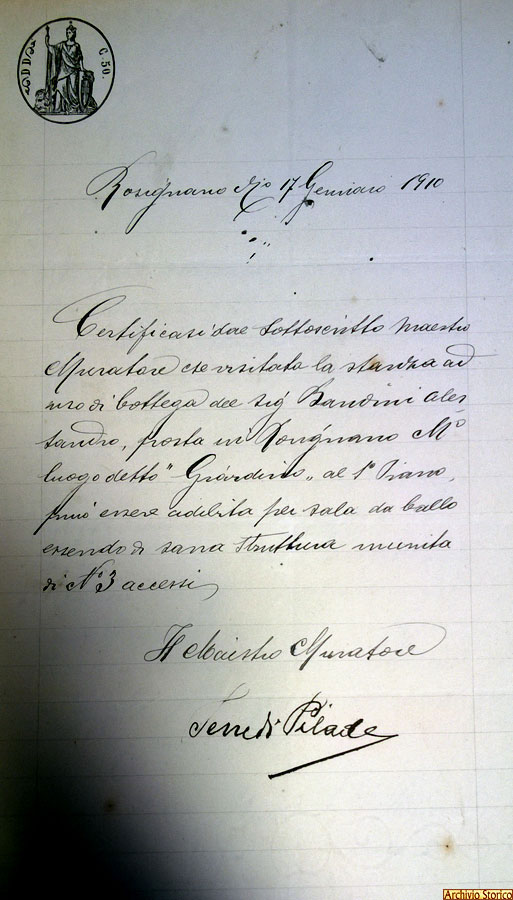 C. 50.
Rosignano Lì 17 Gennaio 1910
Certificasi dal sottoscritto Maestro
Muratore che visitata la stanza ad
uso di bottega del Sig Bandini Ales
sandro, posta in Rosignano Mo
luogo detto "Giardino" al 1° Piano,
può essere adibita per sala da ballo
essendo di sana struttura munita
di No 3 accessi
Il Maestro Muratore
Pilade
Archivio Storico